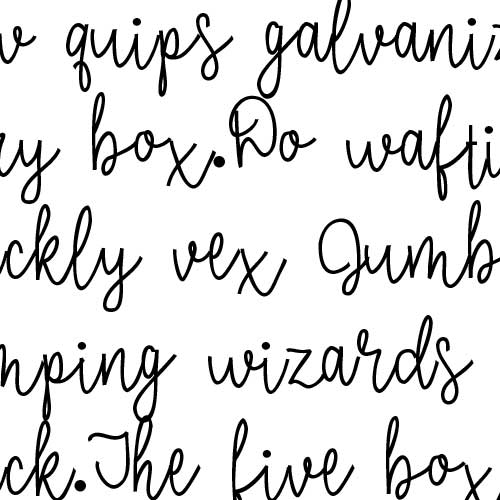 quips galvaniz
ry box.Do wafti
ckly vex Jumb
mping wizards
ck.The five box